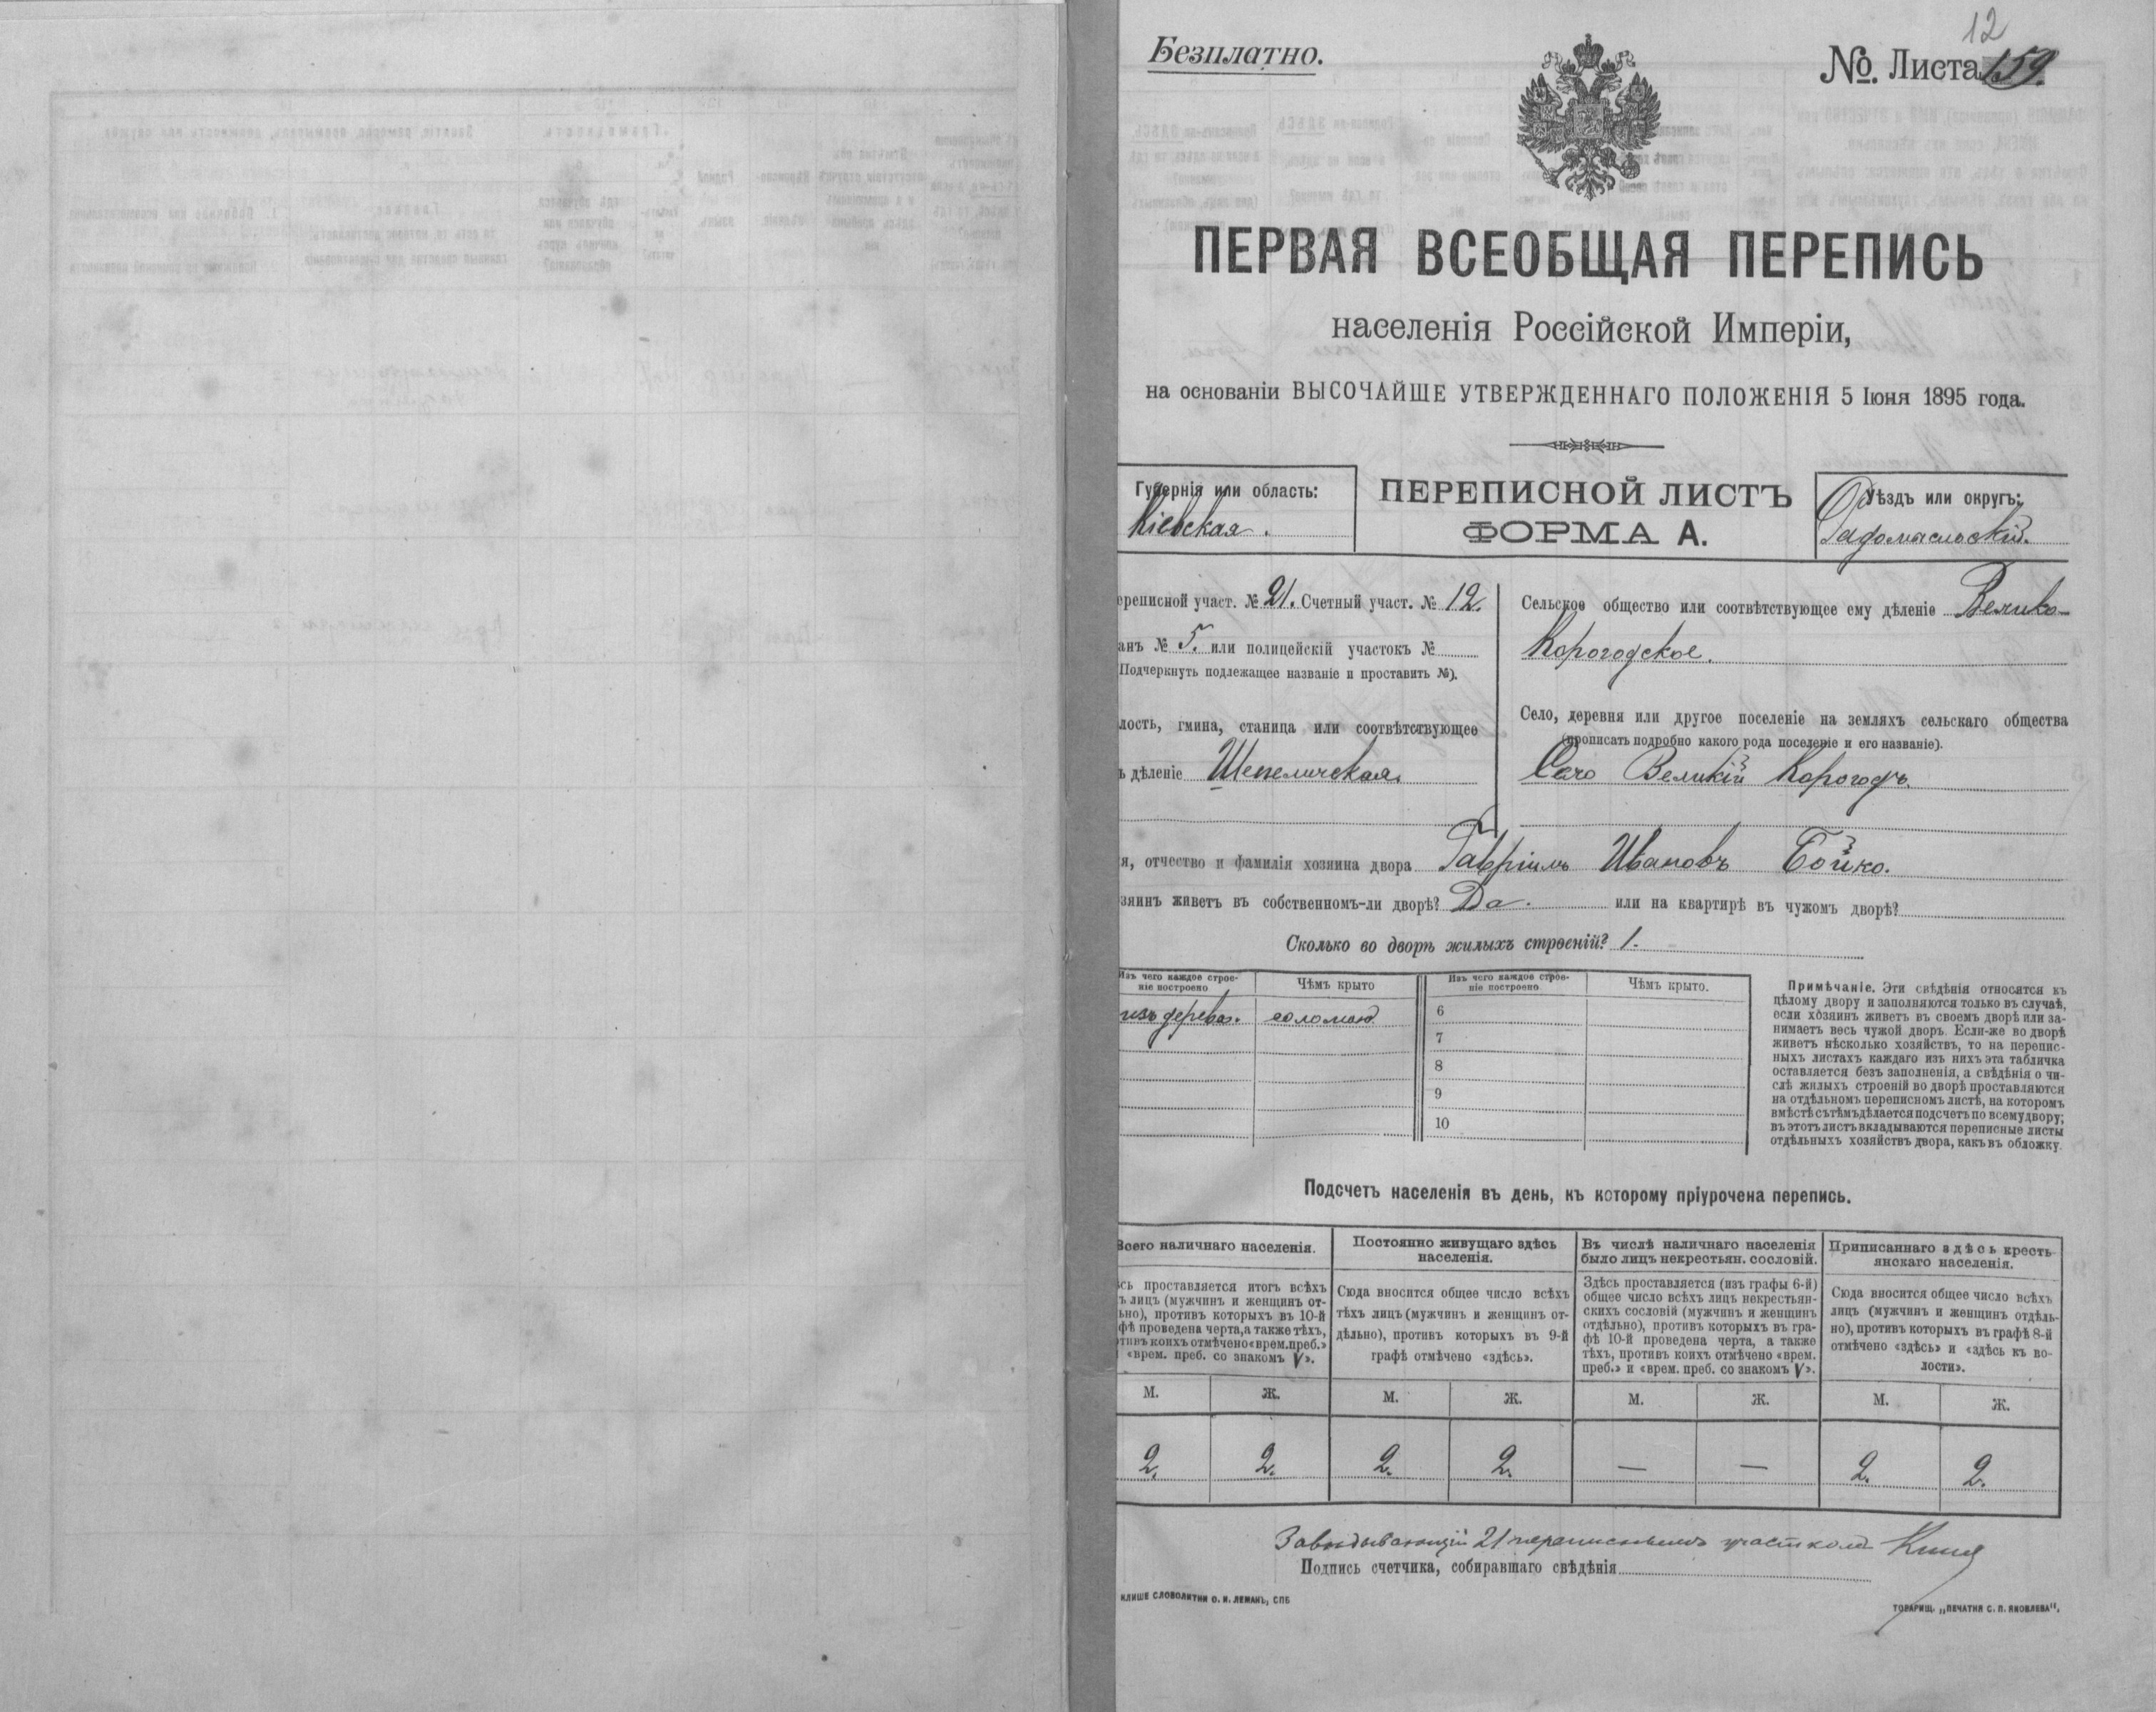 Безплатно.
12
№. Листа 159.
ПЕРВАЯ ВСЕОБЩАЯ ПЕРЕПИСЬ
населенія Россійской Имперіи,
на основаніи ВЫСОЧАЙШЕ УТВЕРЖДЕННАГО ПОЛОЖЕНІЯ 5 Іюня 1895 года.
Губернія или область:
Кіевская.
ПЕРЕПИСНОЙ ЛИСТЪ
ФОРМА А.
Уѣздъ или округъ:
Радомысльскій.
ереписной участ. № 21. Счетный участ. № 12.
анъ № 5. или полицейскій участокъ №
Подчеркнуть подлежащее названіе и проставить №).
лость, гмина, станица или соотвѣтствующее
ъ дѣленіе Шепеличская.
Сельское общество или соотвѣтствующее ему дѣленіе Велико-
Корогодское.
Село, деревня или другое поселеніе на земляхъ сельскаго общества
(прописать подробно какого рода поселеніе и его названіе).
Село Великій Корогодъ.
я, отчество и фамилія хозяина двора Гавріилъ Ивановъ Бойко.
зяинъ живетъ въ собственномъ-ли дворѣ? Да. или на квартирѣ въ чужомъ дворѣ?
Сколько во дворѣ жилыхъ строеній? 1.
Изъ чего каждое строе-
ніе построено
Чѣмъ крыто
Изъ чего каждое строе-
ніе построено
Чѣмъ крыто.
изъ дерева. соломою
6
7
8
9
10
Примѣчаніе. Эти свѣдѣнія относятся къ
цѣлому двору и заполняются только въ случаѣ,
если хозяинъ живетъ въ своемъ дворѣ или за-
нимаетъ весь чужой дворъ. Если-же во дворѣ
живетъ нѣсколько хозяйствъ, то на перепис-
ныхъ листахъ каждаго изъ нихъ эта табличка
оставляется безъ заполненія, а свѣдѣнія о чи-
слѣ жилыхъ строеній во дворѣ проставляются
на отдѣльномъ переписномъ листѣ, на которомъ
вмѣстѣ съ тѣмъ дѣлается подсчетъ по всему двору;
въ этотъ листъ вкладываются переписные листы
отдѣльныхъ хозяйствъ двора, какъ въ обложку.
Подсчетъ населенія въ день, къ которому пріурочена перепись.
Всего наличнаго населенія.
сь проставляется итогъ всѣхъ
ъ лицъ (мужчинъ и женщинъ от-
ьно), противъ которыхъ въ 10-й
фѣ проведена черта, а также тѣхъ,
отивъ коихъ отмѣчено «врем. преб.»
«врем. преб. со знакомъ V».
Постоянно живущаго здѣсь
населенія.
Сюда вносится общее число всѣхъ
тѣхъ лицъ (мужчинъ и женщинъ от-
дѣльно), противъ которыхъ въ 9-й
графѣ отмѣчено «здѣсь».
Въ числѣ наличнаго населенія
было лицъ некрестьян. сословій.
Здѣсь проставляется (изъ графы 6-й)
общее число всѣхъ лицъ некрестьян-
скихъ сословій (мужчинъ и женщинъ
отдѣльно), противъ которыхъ въ гра-
фѣ 10-й проведена черта, а также
тѣхъ, противъ коихъ отмѣчено «врем.
преб.» и «врем. преб. со знакомъ V».
Приписаннаго здѣсь кресть-
янскаго населенія.
Сюда вносится общее число всѣхъ
лицъ (мужчинъ и женщинъ отдѣль-
но), противъ которыхъ въ графѣ 8-й
отмѣчено «здѣсь» и «здѣсь къ во-
лости».
М. Ж. М. Ж. М. Ж. М. Ж.
2. 2. 2. 2. — — 2. 2.
Завѣдывающій 21 переписнымъ участкомъ
Подпись счетчика, собиравшаго свѣдѣнія
КЛИШЕ СЛОВОЛИТНИ О. И. ЛЕМАНЪ, СПБ
ТОВАРИЩ. „ПЕЧАТНЯ С. П. ЯКОВЛЕВА“.